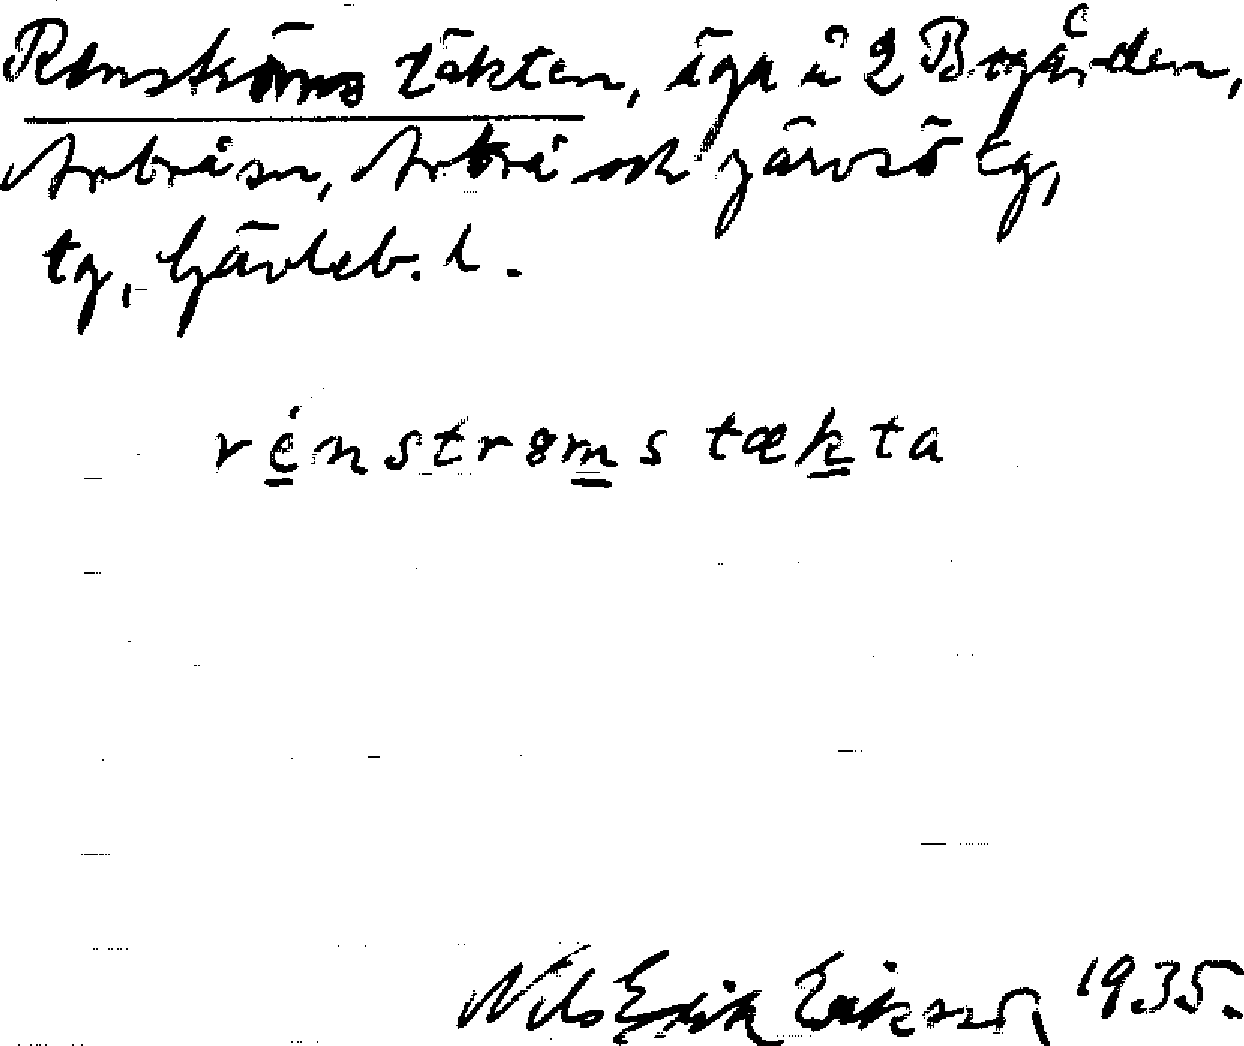 Renströms täkten, äga i 2 Bogården,
Arbrå sn, Arbrå och Järvsö tg,
tg, Gävleb. l.
rénstrøms tækta
Nils Erik Eriksson 1935.